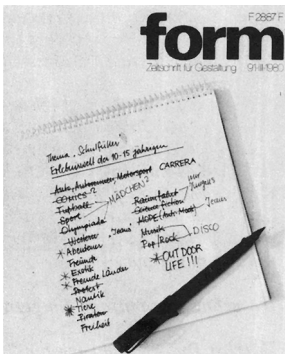 F 2887 F
form
Zeitschrift für Gestaltung 91-III-1980
Thema „Schulfüller"
Erlebniswelt der 10-15 jährigen
Auto, Autorennen, Motorsport CARRERA
COMICS ?
Fußball MÄDCHEN?
Sport
Olympiade
Western
* Abenteuer „Jeans"
Freunde
* Exotik
* Fremde Länder
Protest
Nautik
* Tiere
Piraten
Freiheit
Raumfahrt nur Jungens
Science fiction
MODE (Anti-Mode) Jeans
Musik
Pop/Rock DISCO
* OUTDOOR
LIFE !!!